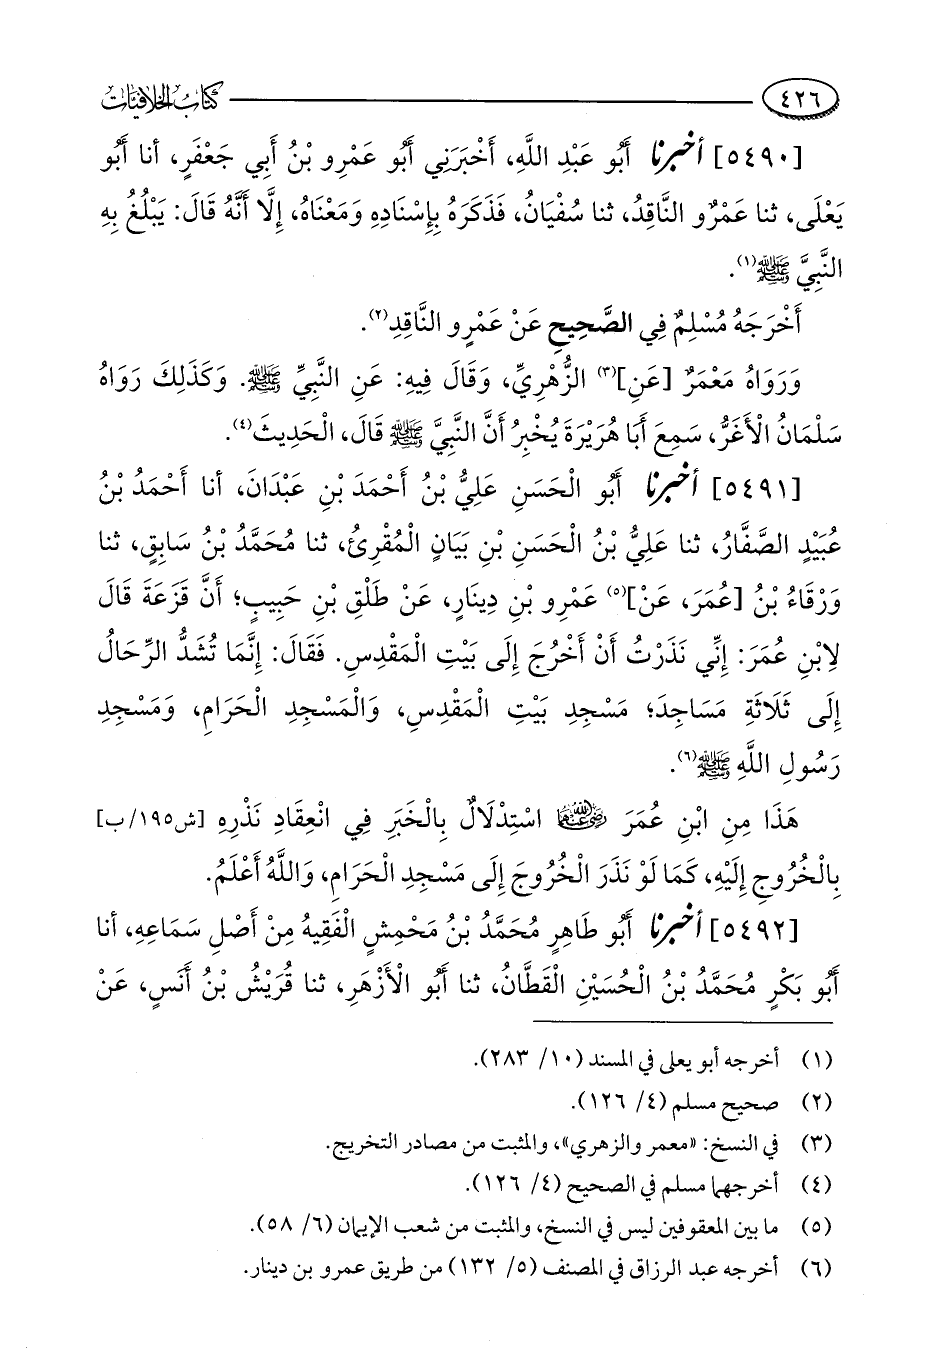 ٤٢٦ كتاب الخلافيات
[٥٤٩٠] أخبرنا أَبُو عَبْدِ اللَّهِ، أَخْبَرَنِي أَبُو عَمْرِو بْنُ أَبِي جَعْفَرٍ، أنا أَبُو
يَعْلَى، ثنا عَمْرٌو النَّاقِدُ، ثنا سُفْيَانُ، فَذَكَرَهُ بِإِسْنَادِهِ وَمَعْنَاهُ، إِلَّا أَنَّهُ قَالَ: يَبْلُغُ بِهِ
النَّبِيَّ ﷺ(١).
أَخْرَجَهُ مُسْلِمٌ فِي الصَّحِيحِ عَنْ عَمْرٍو النَّاقِدِ(٢).
وَرَوَاهُ مَعْمَرٌ [عَنِ](٣) الزُّهْرِيِّ، وَقَالَ فِيهِ: عَنِ النَّبِيِّ ﷺ. وَكَذَلِكَ رَوَاهُ
سَلْمَانُ الْأَغَرُّ، سَمِعَ أَبَا هُرَيْرَةَ يُخْبِرُ أَنَّ النَّبِيَّ ﷺ قَالَ، الْحَدِيثَ(٤).
[٥٤٩١] أخبرنا أَبُو الْحَسَنِ عَلِيُّ بْنُ أَحْمَدَ بْنِ عَبْدَانَ، أنا أَحْمَدُ بْنُ
عُبَيْدٍ الصَّفَّارُ، ثنا عَلِيُّ بْنُ الْحَسَنِ بْنِ بَيَانٍ الْمُقْرِئُ، ثنا مُحَمَّدُ بْنُ سَابِقٍ، ثنا
وَرْقَاءُ بْنُ [عُمَرَ، عَنْ](٥) عَمْرِو بْنِ دِينَارٍ، عَنْ طَلْقِ بْنِ حَبِيبٍ؛ أَنَّ قَزَعَةَ قَالَ
لِابْنِ عُمَرَ: إِنِّي نَذَرْتُ أَنْ أَخْرُجَ إِلَى بَيْتِ الْمَقْدِسِ. فَقَالَ: إِنَّمَا تُشَدُّ الرِّحَالُ
إِلَى ثَلَاثَةِ مَسَاجِدَ؛ مَسْجِدِ بَيْتِ الْمَقْدِسِ، وَالْمَسْجِدِ الْحَرَامِ، وَمَسْجِدِ
رَسُولِ اللَّهِ ﷺ(٦).
هَذَا مِنِ ابْنِ عُمَرَ رضي الله عنهما اسْتِدْلَالٌ بِالْخَبَرِ فِي انْعِقَادِ نَذْرِهِ [ش١٩٥/ب]
بِالْخُرُوجِ إِلَيْهِ، كَمَا لَوْ نَذَرَ الْخُرُوجَ إِلَى مَسْجِدِ الْحَرَامِ، وَاللَّهُ أَعْلَمُ.
[٥٤٩٢] أخبرنا أَبُو طَاهِرٍ مُحَمَّدُ بْنُ مَحْمِشٍ الْفَقِيهُ مِنْ أَصْلِ سَمَاعِهِ، أنا
أَبُو بَكْرٍ مُحَمَّدُ بْنُ الْحُسَيْنِ الْقَطَّانُ، ثنا أَبُو الْأَزْهَرِ، ثنا قُرَيْشُ بْنُ أَنَسٍ، عَنْ
(١) أخرجه أبو يعلى في المسند (١٠/ ٢٨٣).
(٢) صحيح مسلم (٤/ ١٢٦).
(٣) في النسخ: «معمر والزهري»، والمثبت من مصادر التخريج.
(٤) أخرجهما مسلم في الصحيح (٤/ ١٢٦).
(٥) ما بين المعقوفين ليس في النسخ، والمثبت من شعب الإيمان (٦/ ٥٨).
(٦) أخرجه عبد الرزاق في المصنف (٥/ ١٣٢) من طريق عمرو بن دينار.